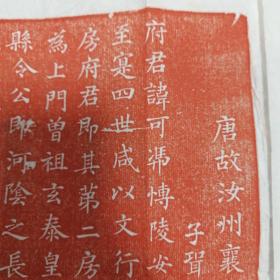 唐故汝州襄
子貿
府君諱可㢮博陵安
至寔四世咸以文行
房府君即其第二房
為上門曽祖玄泰皇
縣令公即河陰之長